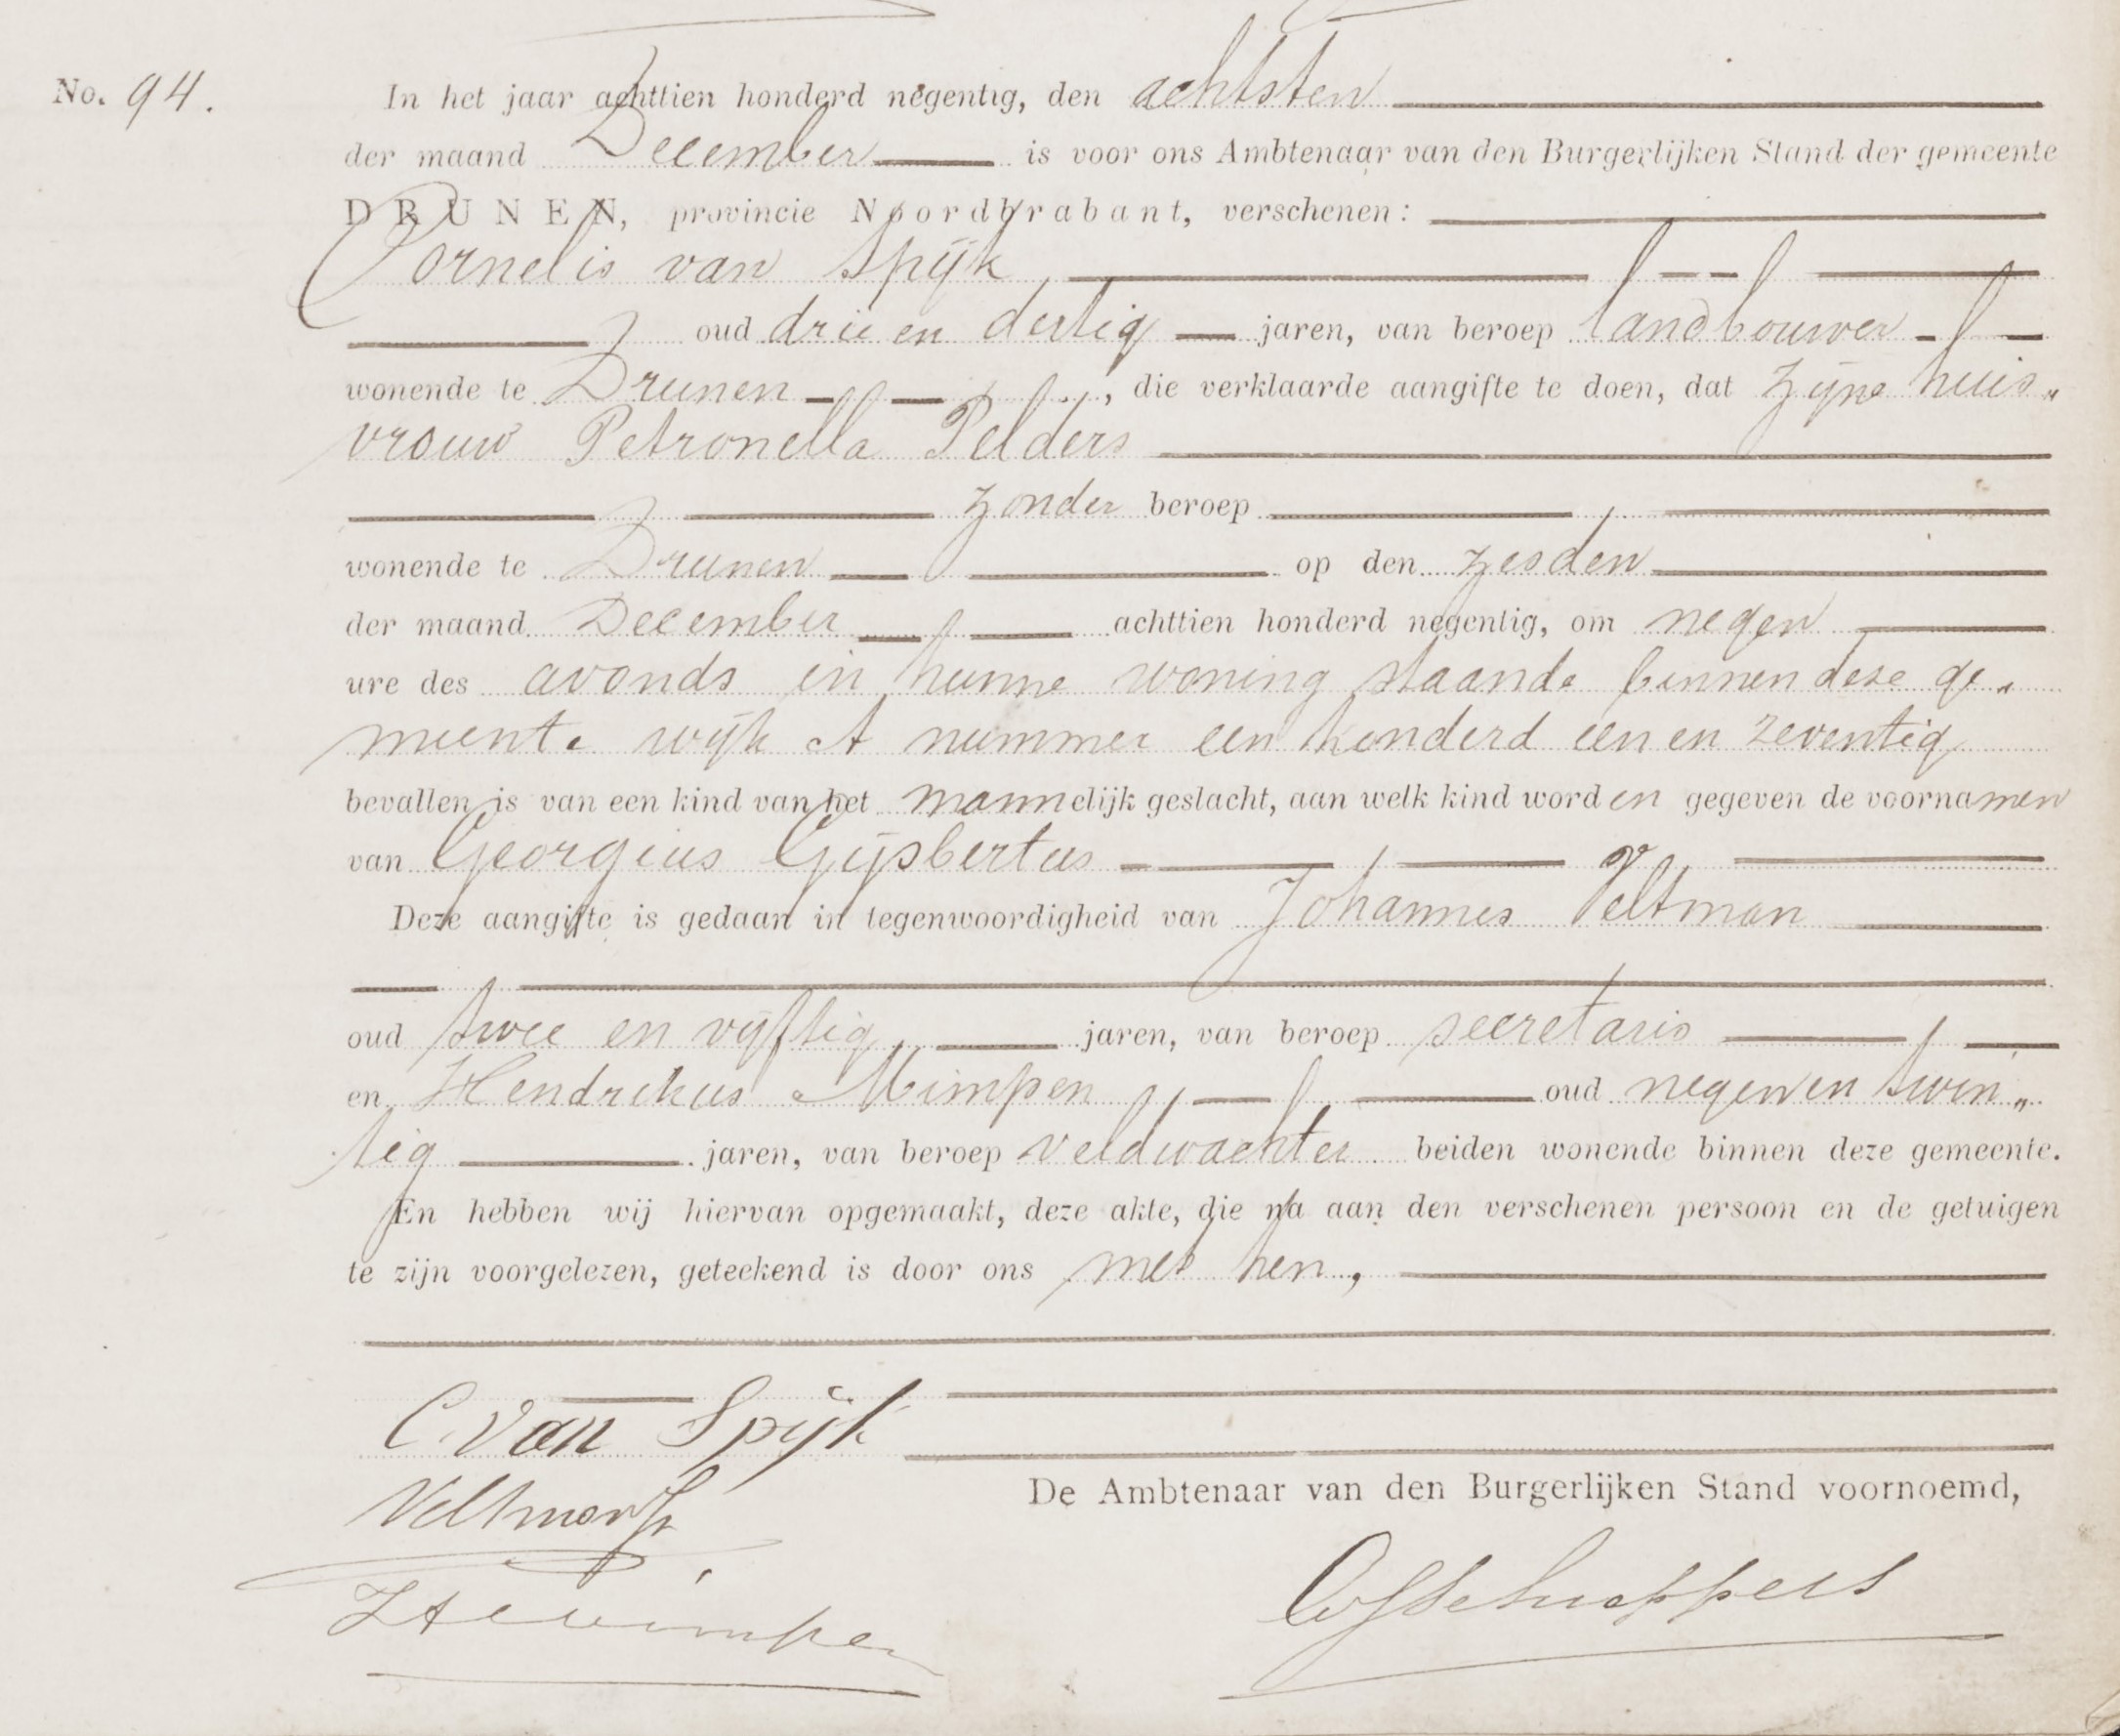 No. 94.
In het jaar achttien honderd negentig, den achtsten
der maand December is voor ons Ambtenaar van den Burgerlijken Stand der gemeente
DRUNEN, provincie Noordbrabant, verschenen:
Cornelis van Spijk
oud drie en dertig jaren, van beroep landbouwer
wonende te Drunen, die verklaarde aangifte te doen, dat zijne huis„
vrouw Petronella Pelders
zonder beroep
wonende te Drunen op den zesden
der maand December achttien honderd negentig, om negen
ure des avonds in hunne woning staande binnen deze ge„
meente wijk A nummer een honderd een en zeventig
bevallen is van een kind van het mannelijk geslacht, aan welk kind worden gegeven de voornamen
van Georgius Gijsbertus
Deze aangifte is gedaan in tegenwoordigheid van Johannes Veltman
oud twee en vijftig jaren, van beroep secretaris
en Hendrikus Mimpen oud negen en twin„
tig jaren, van beroep veldwachter beiden wonende binnen deze gemeente.
En hebben wij hiervan opgemaakt, deze akte, die na aan den verschenen persoon en de getuigen
te zijn voorgelezen, geteekend is door ons met hen,
C. van Spijk
De Ambtenaar van den Burgerlijken Stand voornoemd,
Veltman